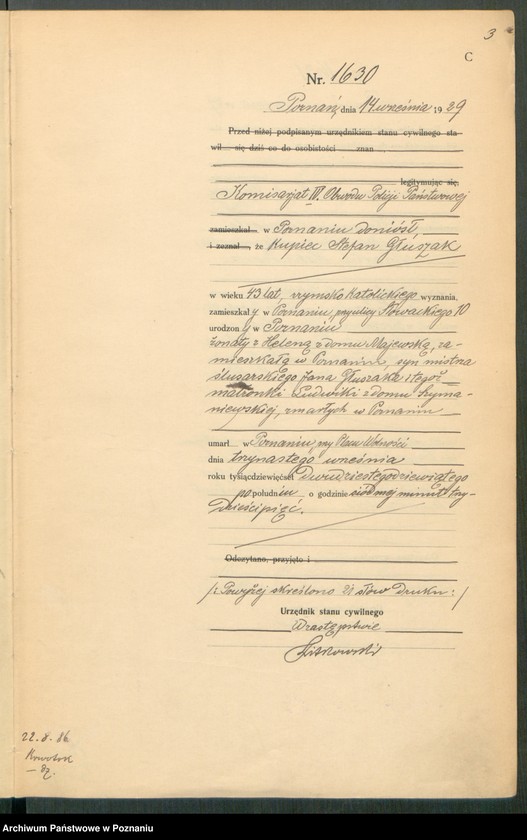 3
C
Nr. 1630
Poznań, dnia 14 września 1929
Przed niżej podpisanym urzędnikiem stanu cywilnego sta-
wił się dziś co do osobistości znan
legitymując się,
Komisarjat IV. Obwodu Policji Państwowej
zamieszkał w Poznaniu doniósł,
i zeznał, że Kupiec Stefan Głuszak
w wieku 43 lat, rzymsko katolickiego wyznania,
zamieszkały w Poznaniu, przy ulicy Słowackiego 10
urodzony w Poznaniu
żonaty z Heleną z domu Majewską, za-
mieszkałą w Poznaniu, syn mistrza
ślusarskiego Jana Głuszaka i tegoż
małżonki Ludwiki z domu Szyma-
niewskiej, zmarłych w Poznaniu
umarł w Poznaniu, przy Placu Wolności
dnia trzynastego września
roku tysiącdziewięćset dwudziestego dziewiątego
po południu o godzinie siódmej minut trzy-
dzieści pięć.
Odczytano, przyjęto i
/: Powyżej skreślono 21 słów druku :/
Urzędnik stanu cywilnego
W zastępstwie
22.8.86
Archiwum Państwowe w Poznaniu